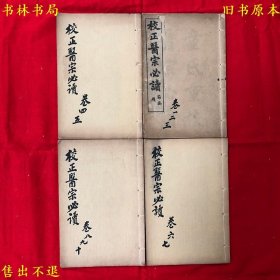 书林书局
旧书原本
校正醫宗必讀
卷四五
校正醫宗必讀
卷一二三
校正醫宗必讀
卷八九十
校正醫宗必讀
卷六七
售出不退
非誠勿擾